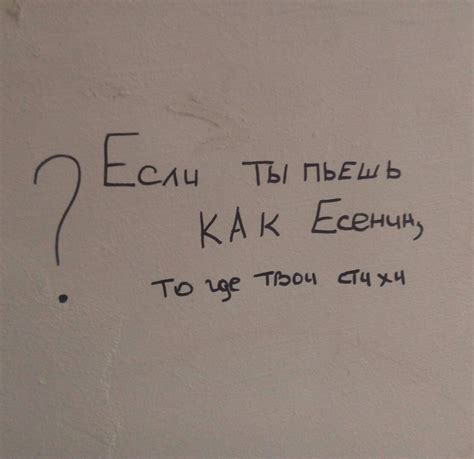 ? Если ты пьешь
как Есенин,
то где твои стихи